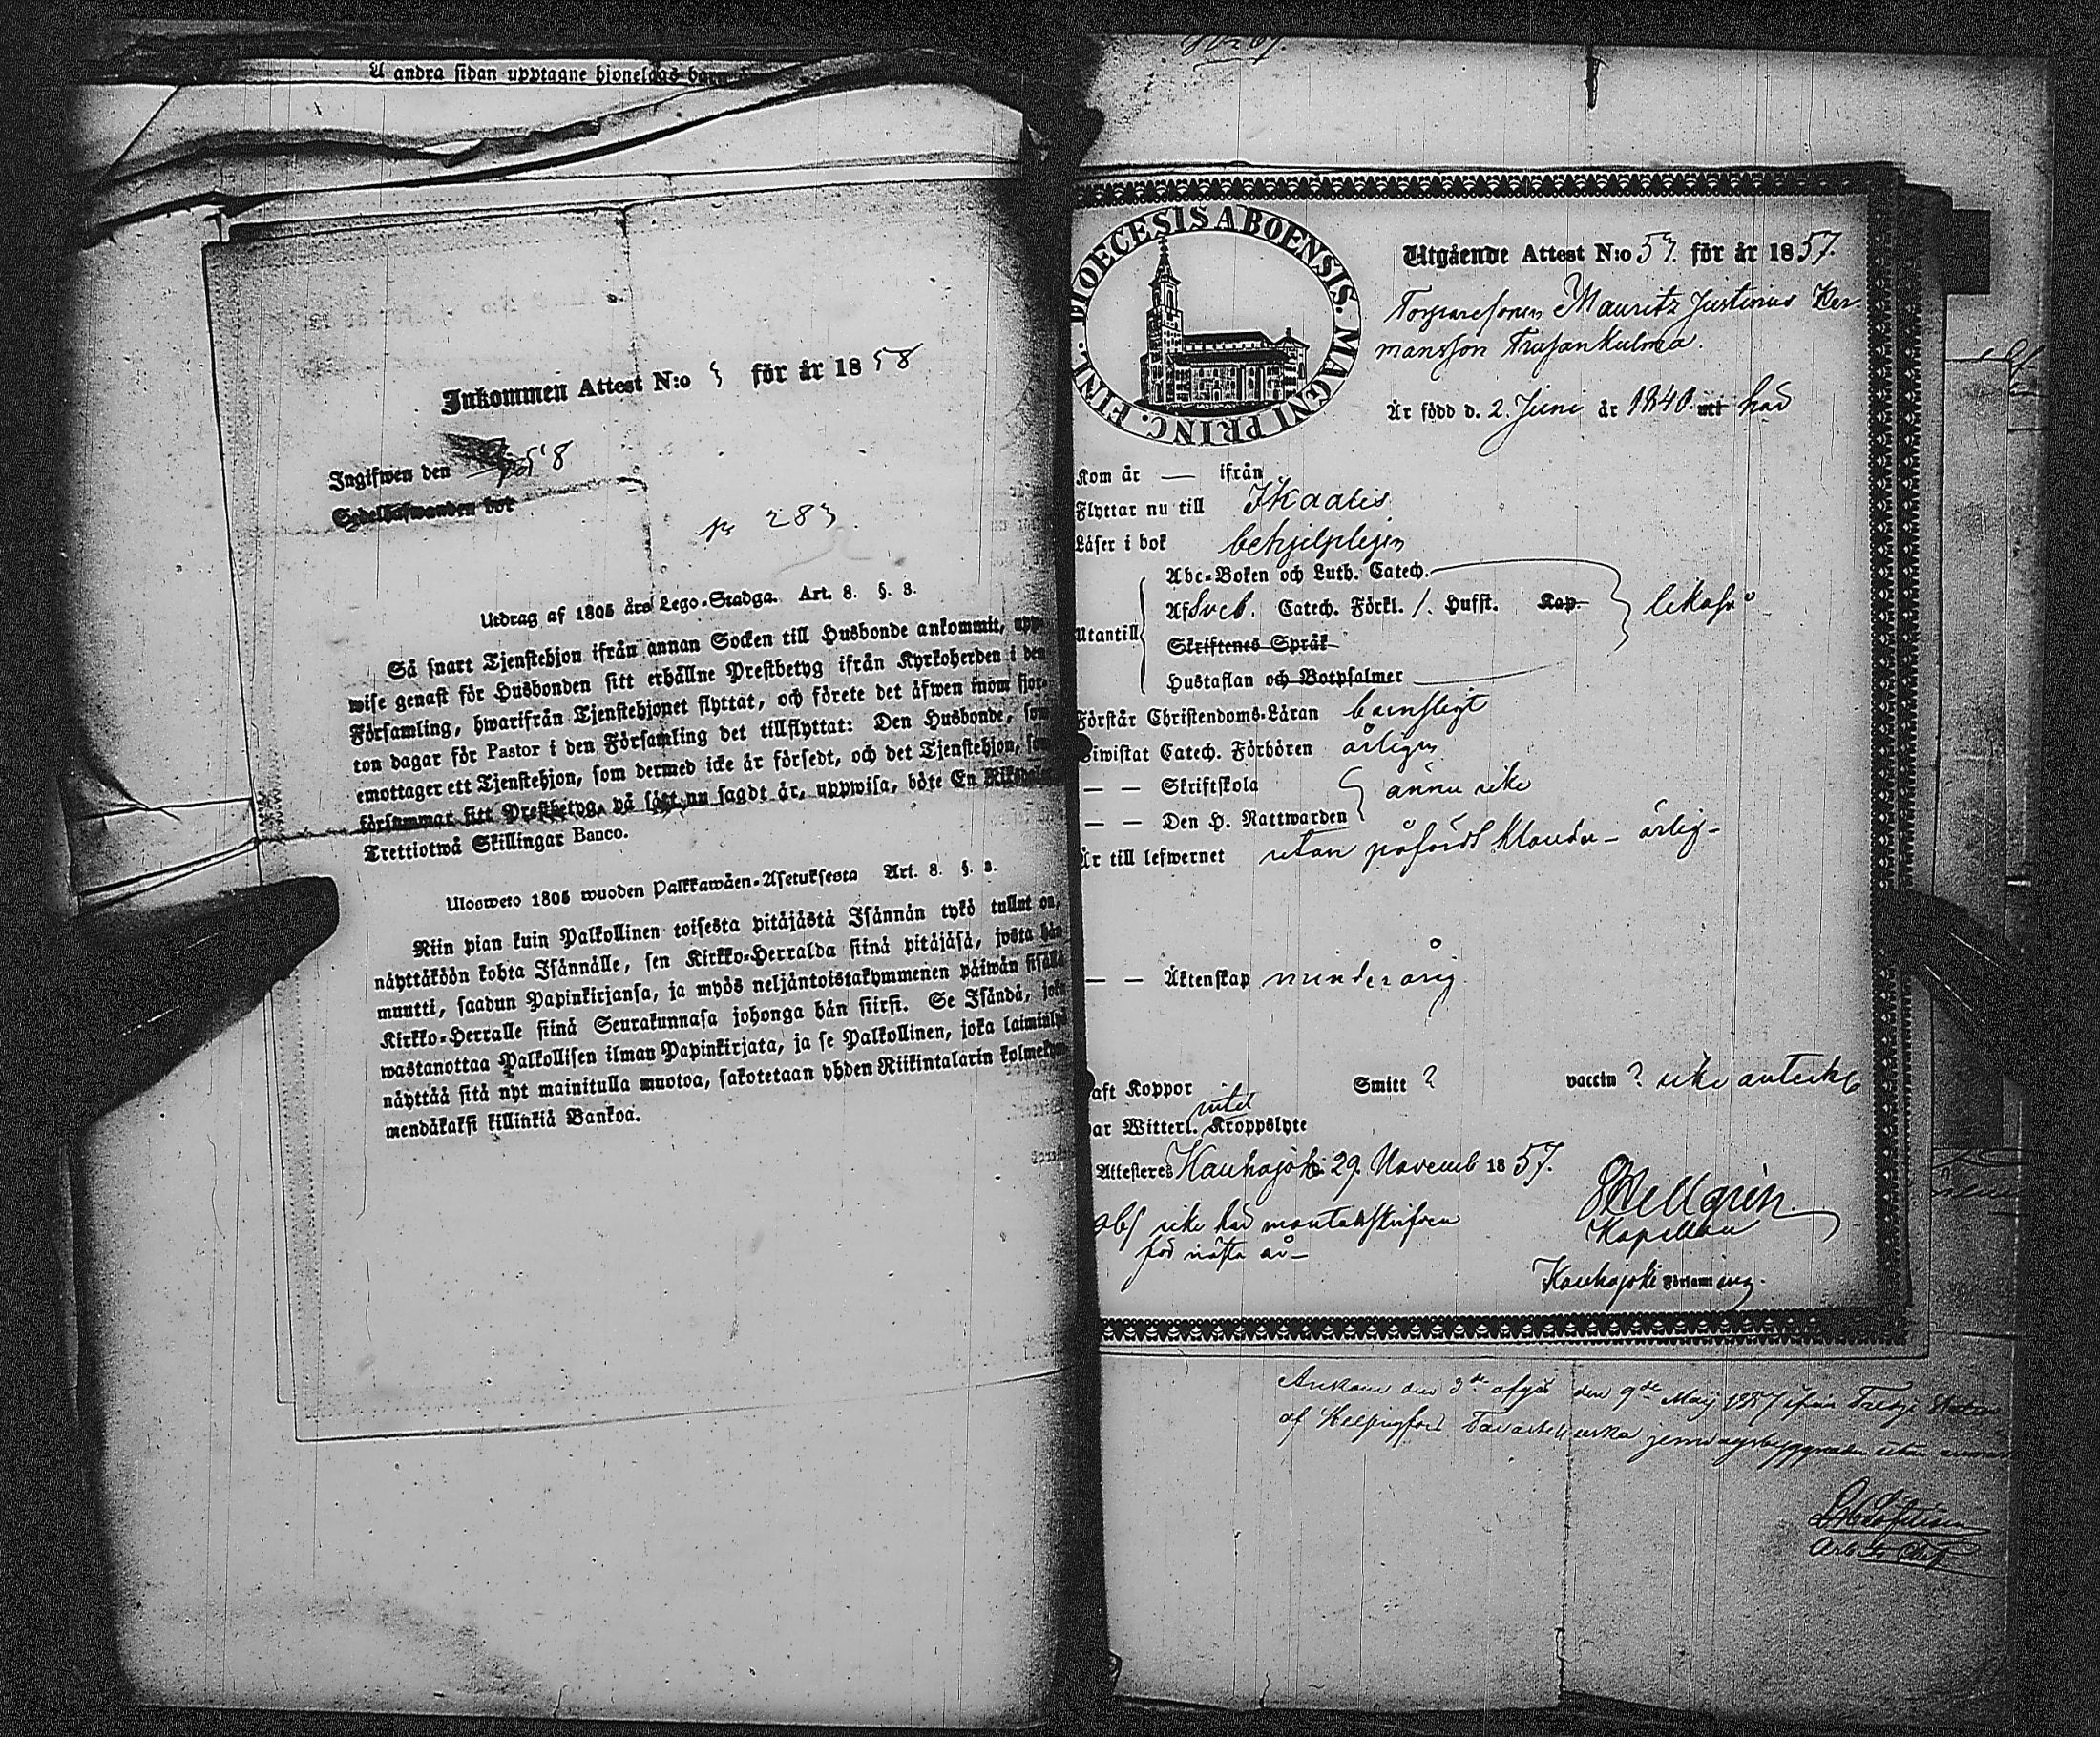 A andra sidan upptagne hjonelags barn
Inkommen Attest N:o 3 för år 1858
Ingifwen den 58
Sedelhafwanden bor
p. 283
Utdrag af 1805 års Lego-Stadga. Art. 8. §. 3.
Så snart Tjenstehjon ifrån annan Socken till Husbonde ankommit, upp-
wise genast för Husbonden sitt erhållne Prestbetyg ifrån Kyrkoherden i den
Församling, hwarifrån Tjenstehjonet flyttat, och förete det äfwen inom fjor-
ton dagar för Pastor i den Församling det tillflyttat: Den Husbonde, som
emottager ett Tjenstehjon, som dermed icke är försedt, och det Tjenstehjon, som
försummar sitt Prestbetyg, på sätt nu sagdt är, uppwisa, böte En Riksdaler
Trettiotwå Skillingar Banco.
Ulosweto 1805 wuoden Palkkawäen-Asetuksesta Art. 8. §. 3.
Niin pian kuin Palkollinen toisesta pitäjästä Isännän tykö tullut on,
näyttäköön kohta Isännälle, sen Kirkko-Herralda siinä pitäjäsä, josta hän
muutti, saadun Papinkirjansa, ja myös neljäntoistakymmenen päiwän sisällä
Kirkko-Herralle siinä Seurakunnasa johonga hän siirsi. Se Isändä, joka
wastanottaa Palkollisen ilman Papinkirjata, ja se Palkollinen, joka laiminlyö
näyttää sitä nyt mainitulla muotoa, sakotetaan yhden Riikintalarin kolmekym-
mendäkaksi killinkiä Bankoa.
DIOECESIS ABOENSIS. MAGNI PRINC. FINL.
Utgående Attest N:o 57. för år 1857.
Torparesonen Mauritz Justinus Her-
mansson
Är född d. 2. Juni år 1840. uti här
Kom år — ifrån
Flyttar nu till Ikaalis
Läser i bok behjelpligen
Abc-Boken och Luth. Catech.
Af Sveb. Catech. Förkl. /. Husst. Kap. likaså
Utantill
Skriftenes Språk
Hustaflan och Botpsalmer
Förstår Christendoms-Läran barnsligt
Biwistat Catech. Förhören årligen
— — Skriftskola
ännu icke
— — Den H. Nattwarden
Är till lefwernet utan påförd klander - ärlig -
— — Äktenskap minderårig.
Haft Koppor Smitt ? vaccin ? icke anteckn
intet
Har Witterl. Kroppslyte
Attesteres Kauhajoki 29. Novemb 1857.
Hellgrén
Kapellan
obs icke här mantalskrifven
för nästa år -
Kauhajoki Församling.
Ankom den 3de afgår den 9de Maij 1857 ifrån
af Helsingfors Tavastehuska jernvägsbyggnaden utan